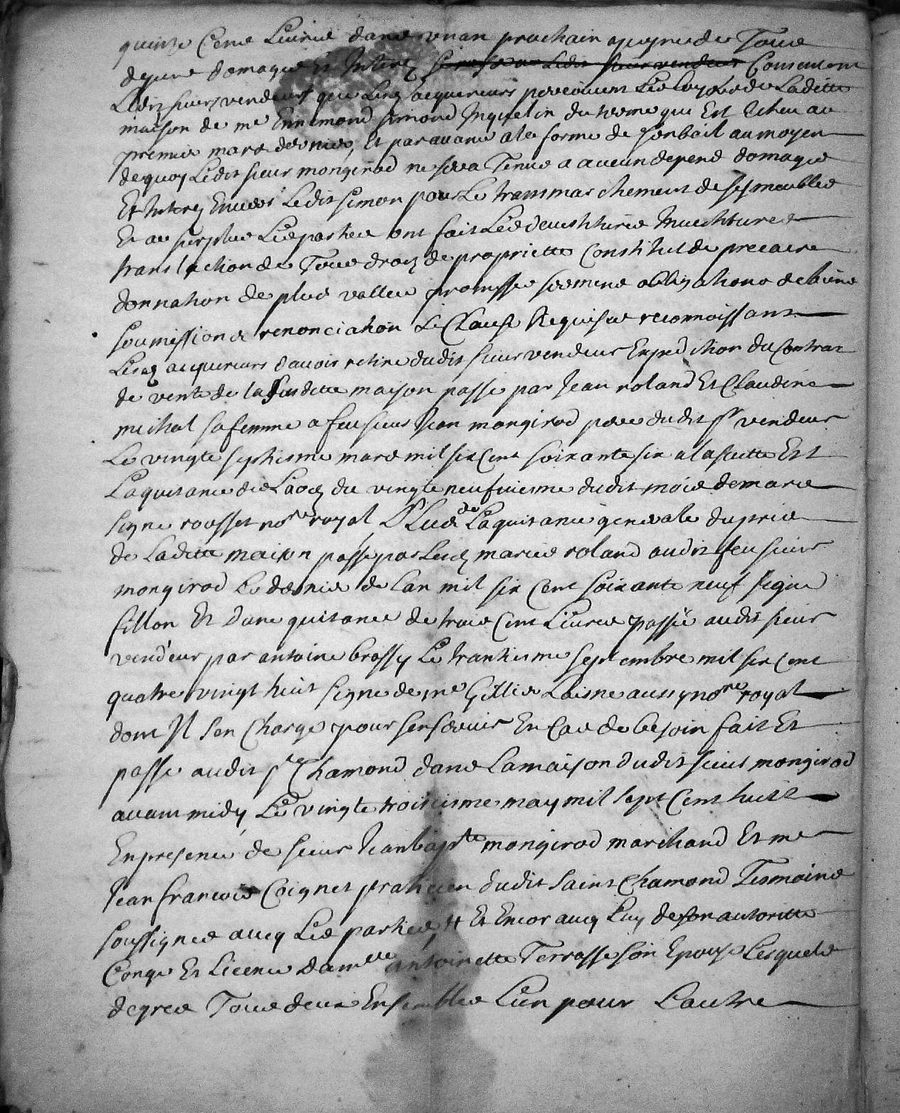 quinze Cens Livres dans un an prochain a peyne de Tous
depens domages Et Interez Consentent
Lesdits sieurs vendeurs que Lesd acquereurs percoivent Les Loyers de Ladite
maison de me Ennemond Simond du terme qui Est Echeu au
premier mars dernier, Et par avance a la forme de son bail au moyen
de quoy Ledit sieur mongirod ne sera Tenus a aucun depend domages
Et Interez Envers Ledit Simon pour Le transmarchement de ses meubles
Et au surplus Les parties ont fait Les devestitures Investitures
translation de Tous droiz de proprietté Constitut de precaire
donnation de plus vallue promesse serment obligations de biens
soumissions renonciation Et Clause Requises reconnoissant
Lesd acquereurs davoir retiré dudit sieur vendeur Expedition du Contrat
de vente de la susditte maison passé par Jean roland Et Claudine
michal sa femme a feu sieur Jean mongirod pere dudit sr vendeur
Le vingt septiesme mars mil six Cent soixante six a la suitte Est
La quitance des Laods du vingt neufviesme dudit mois de mars
signé rousset nore royal La quitance generale du prix
de Laditte maison passé par Lesd mariés roland audit feu sieur
mongirod Le dernier de Lan mil six Cent soixante neuf signé
fillon Et dune quitance de trois Cent Livres passée audit sieur
vendeur par antoine brossy Le trantiesme septembre mil six Cent
quatre vingt huit signé de me Gillier Laisné aussy nore royal
dont Il sen Charge pour sen servir En Cas de besoin fait Et
passé audit St Chamond dans La maison dudit sieur mongirod
avant midy Le vingt troisiesme may mil sept Cent huit
En presence de sieur Jean bapte mongirod marchand Et me
Jean francois Coignet praticien dudit Saint Chamond Tesmoins
soussignés avecq Les parties # Et Encor avecq Luy de son autoritté
Congé Et Licence damlle antoinette Terrasse son Epouse Lesquels
de grés Tous deux Ensembles L'un pour Lautre